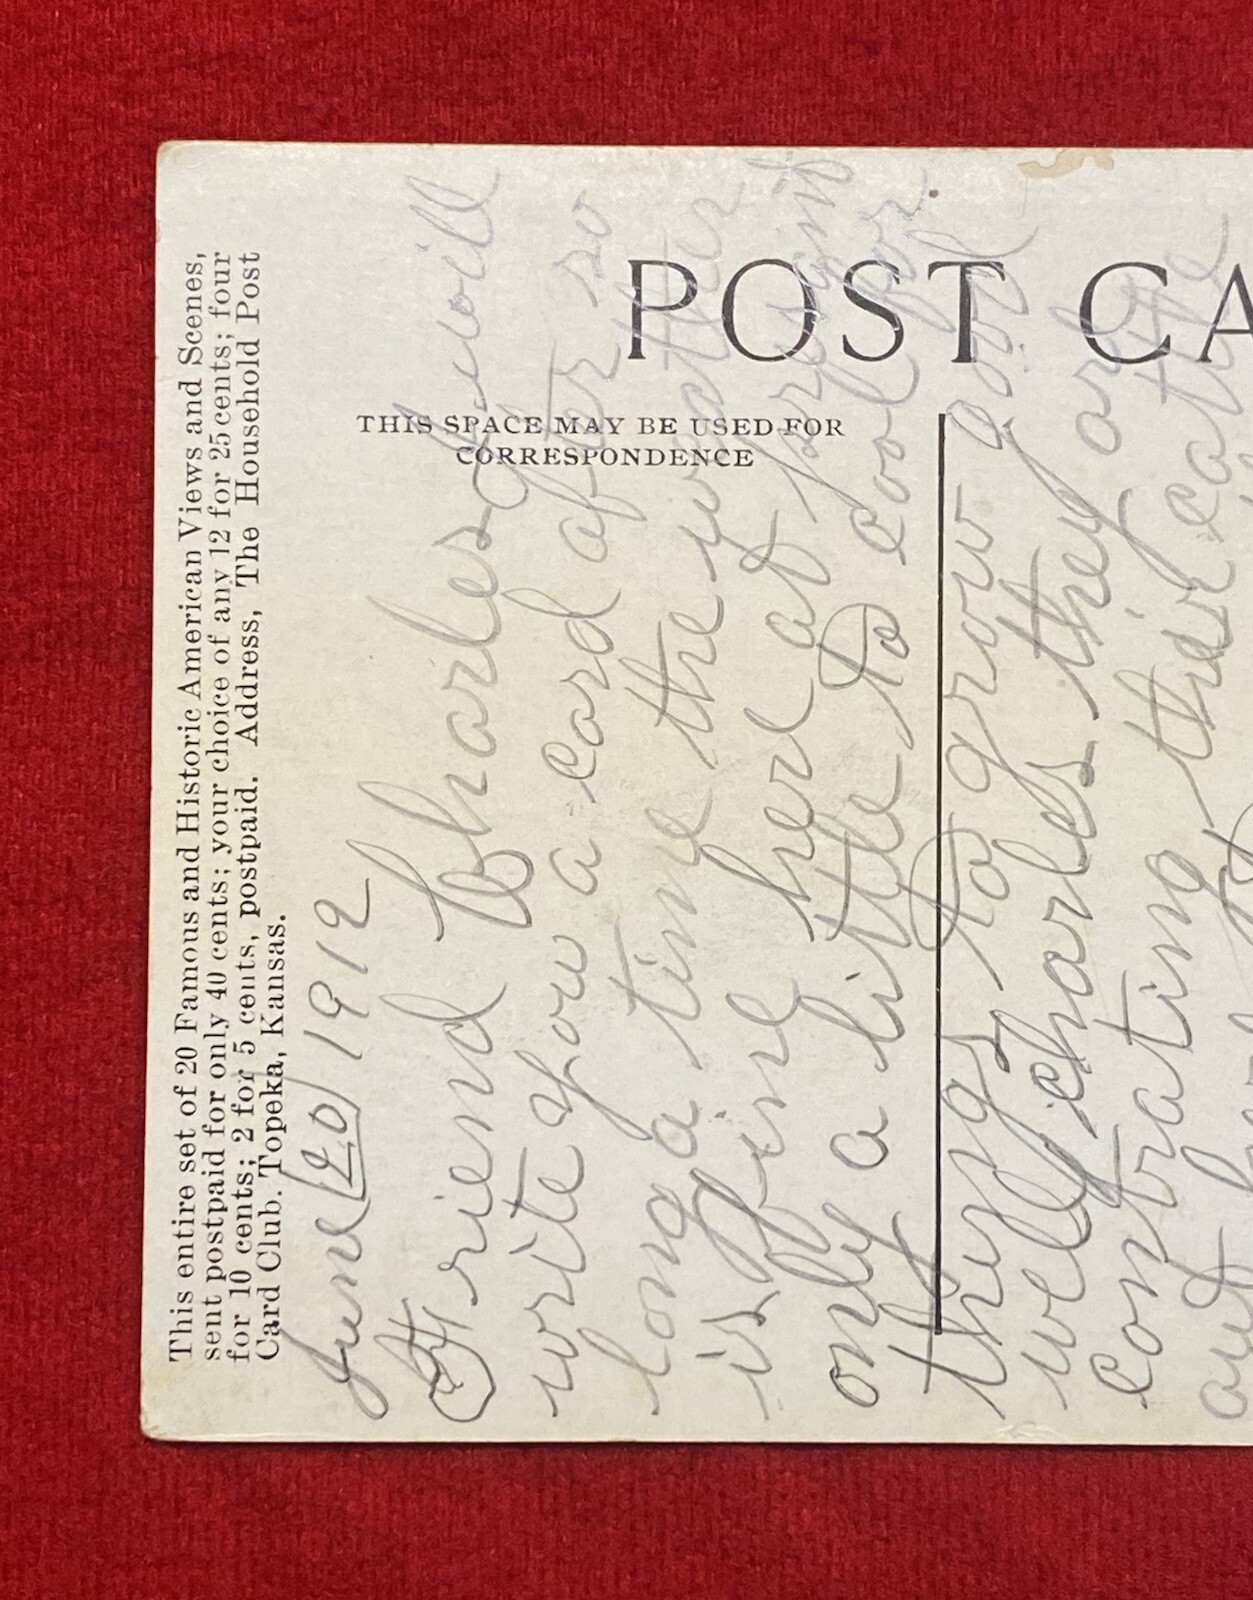 This entire set of 20 Famous and Historic American Views and Scenes,
sent postpaid for only 40 cents; your choice of any 12 for 25 cents; four
for 10 cents; 2 for 5 cents, postpaid. Address, The Household Post
Card Club. Topeka, Kansas.
POST CA
THIS SPACE MAY BE USED FOR
CORRESPONDENCE
June 20 1912
Friend Charles I will
write you a card after so
long a time the watter
is fine here at present
only a little to cool for
things to grow good
well charles they are
contrating their catle